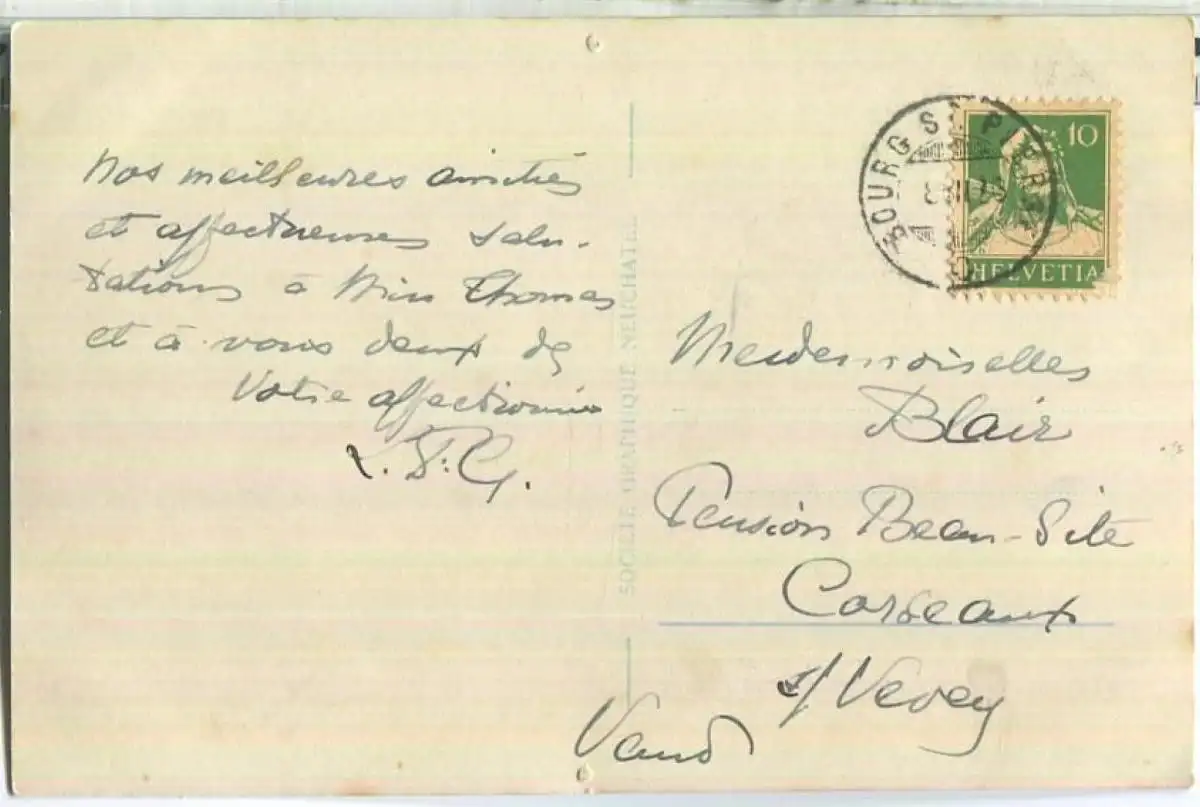 Nos meilleures amitiés
et affectueuses salu-
tations à Miss Thomas
et à vous deux de
Votre affectionnée
SOCIÉTÉ GRAPHIQUE NEUCHATEL
BOURG ST PIERRE
10
HELVETIA
Mesdemoiselles
Blair
Pension Beau-Site
Corseaux
s/Vevey
Vaud